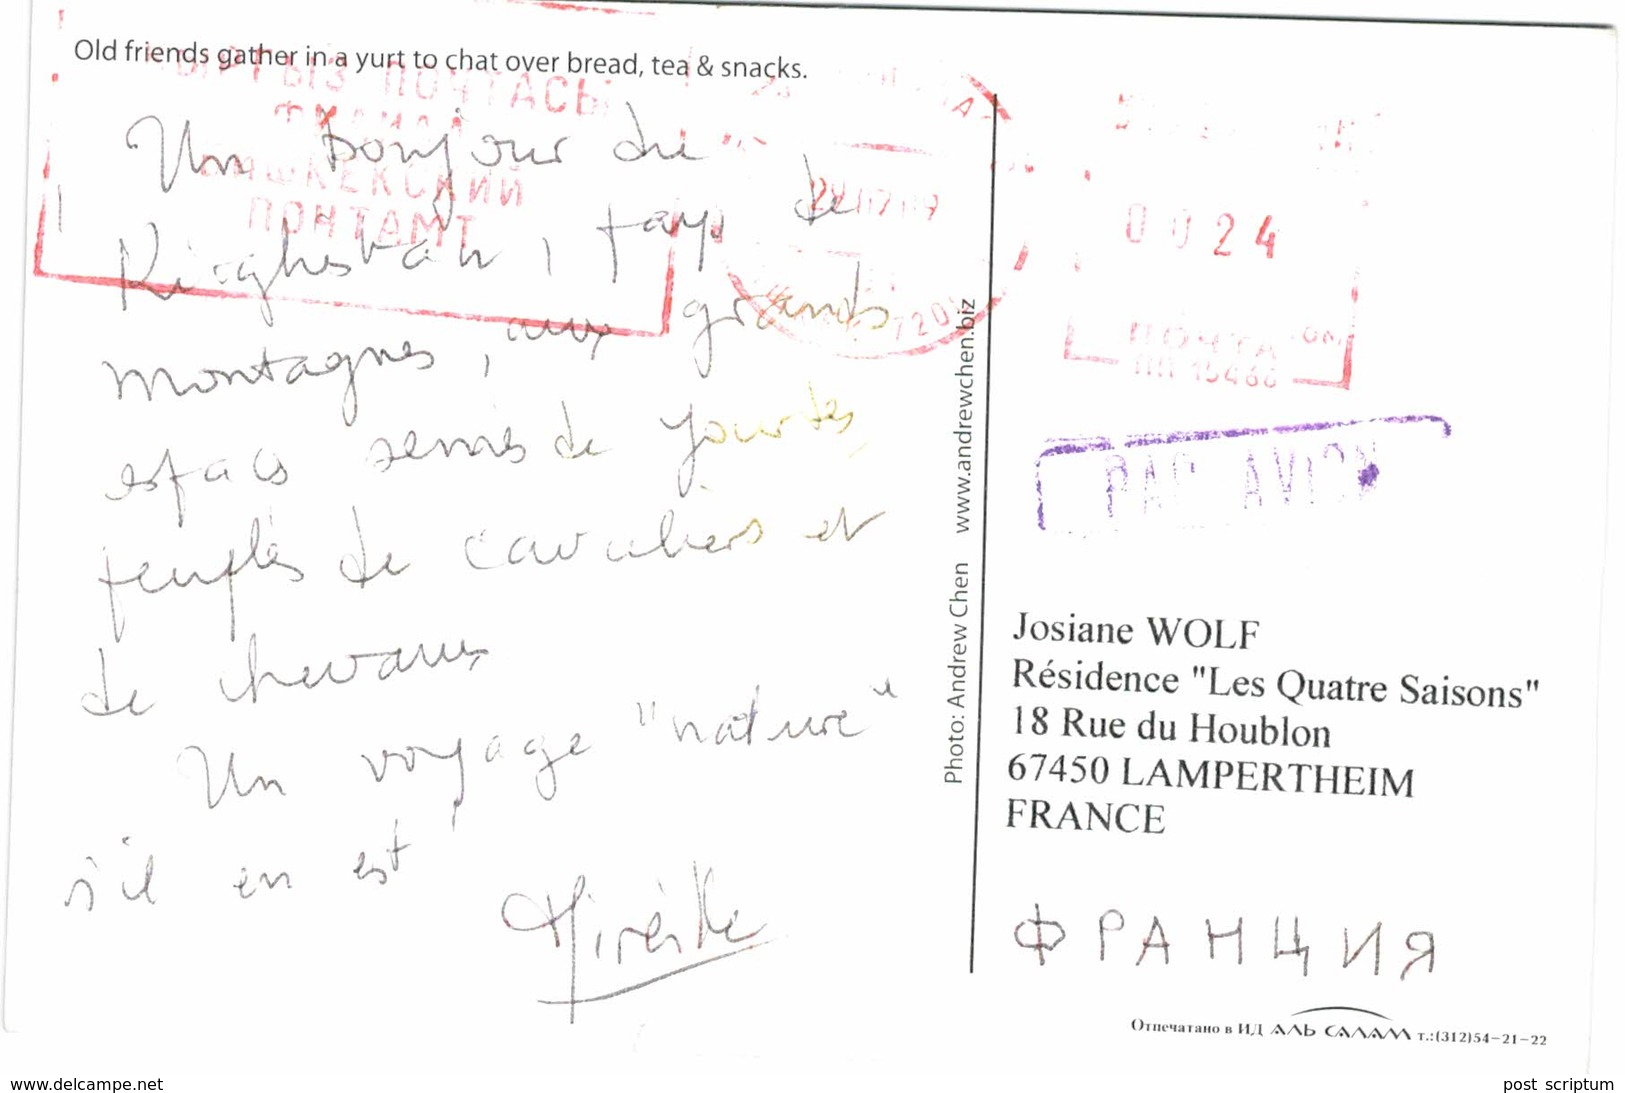 Old friends gather in a yurt to chat over bread, tea & snacks.
КЫРГЫЗ ПОЧТАСЫ
БИШКЕКСКИЙ
ПОЧТАМТ
0024
ПОЧТА
PAR AVION
Un bonjour du
Kirghistan, pays de
montagnes, aux grands
espaces semés de yourtes,
peuplés de cavaliers et
de chevaux
Un voyage "nature"
s'il en est
Mireille
Photo: Andrew Chen www.andrewchen.biz
Josiane WOLF
Résidence "Les Quatre Saisons"
18 Rue du Houblon
67450 LAMPERTHEIM
FRANCE
ФРАНЦИЯ
Отпечатано в ИД АЛЬ САЛАМ т.:(312)54-21-22
www.delcampe.net
post scriptum